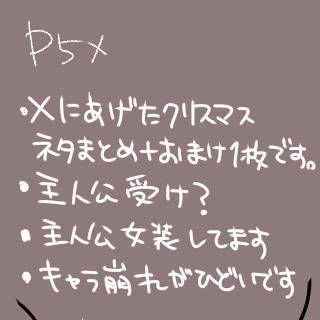 P5X
・Xにあげたクリスマス
ネタまとめ+おまけ1枚です。
・主人公受け?
・主人公女装してます
・キャラ崩れがひどいです